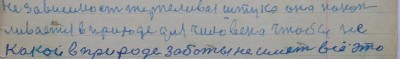 не зависимост терпеливая штука она накап
ливается в природе для человека чтобы не
какой в природе заботы не имет всё это